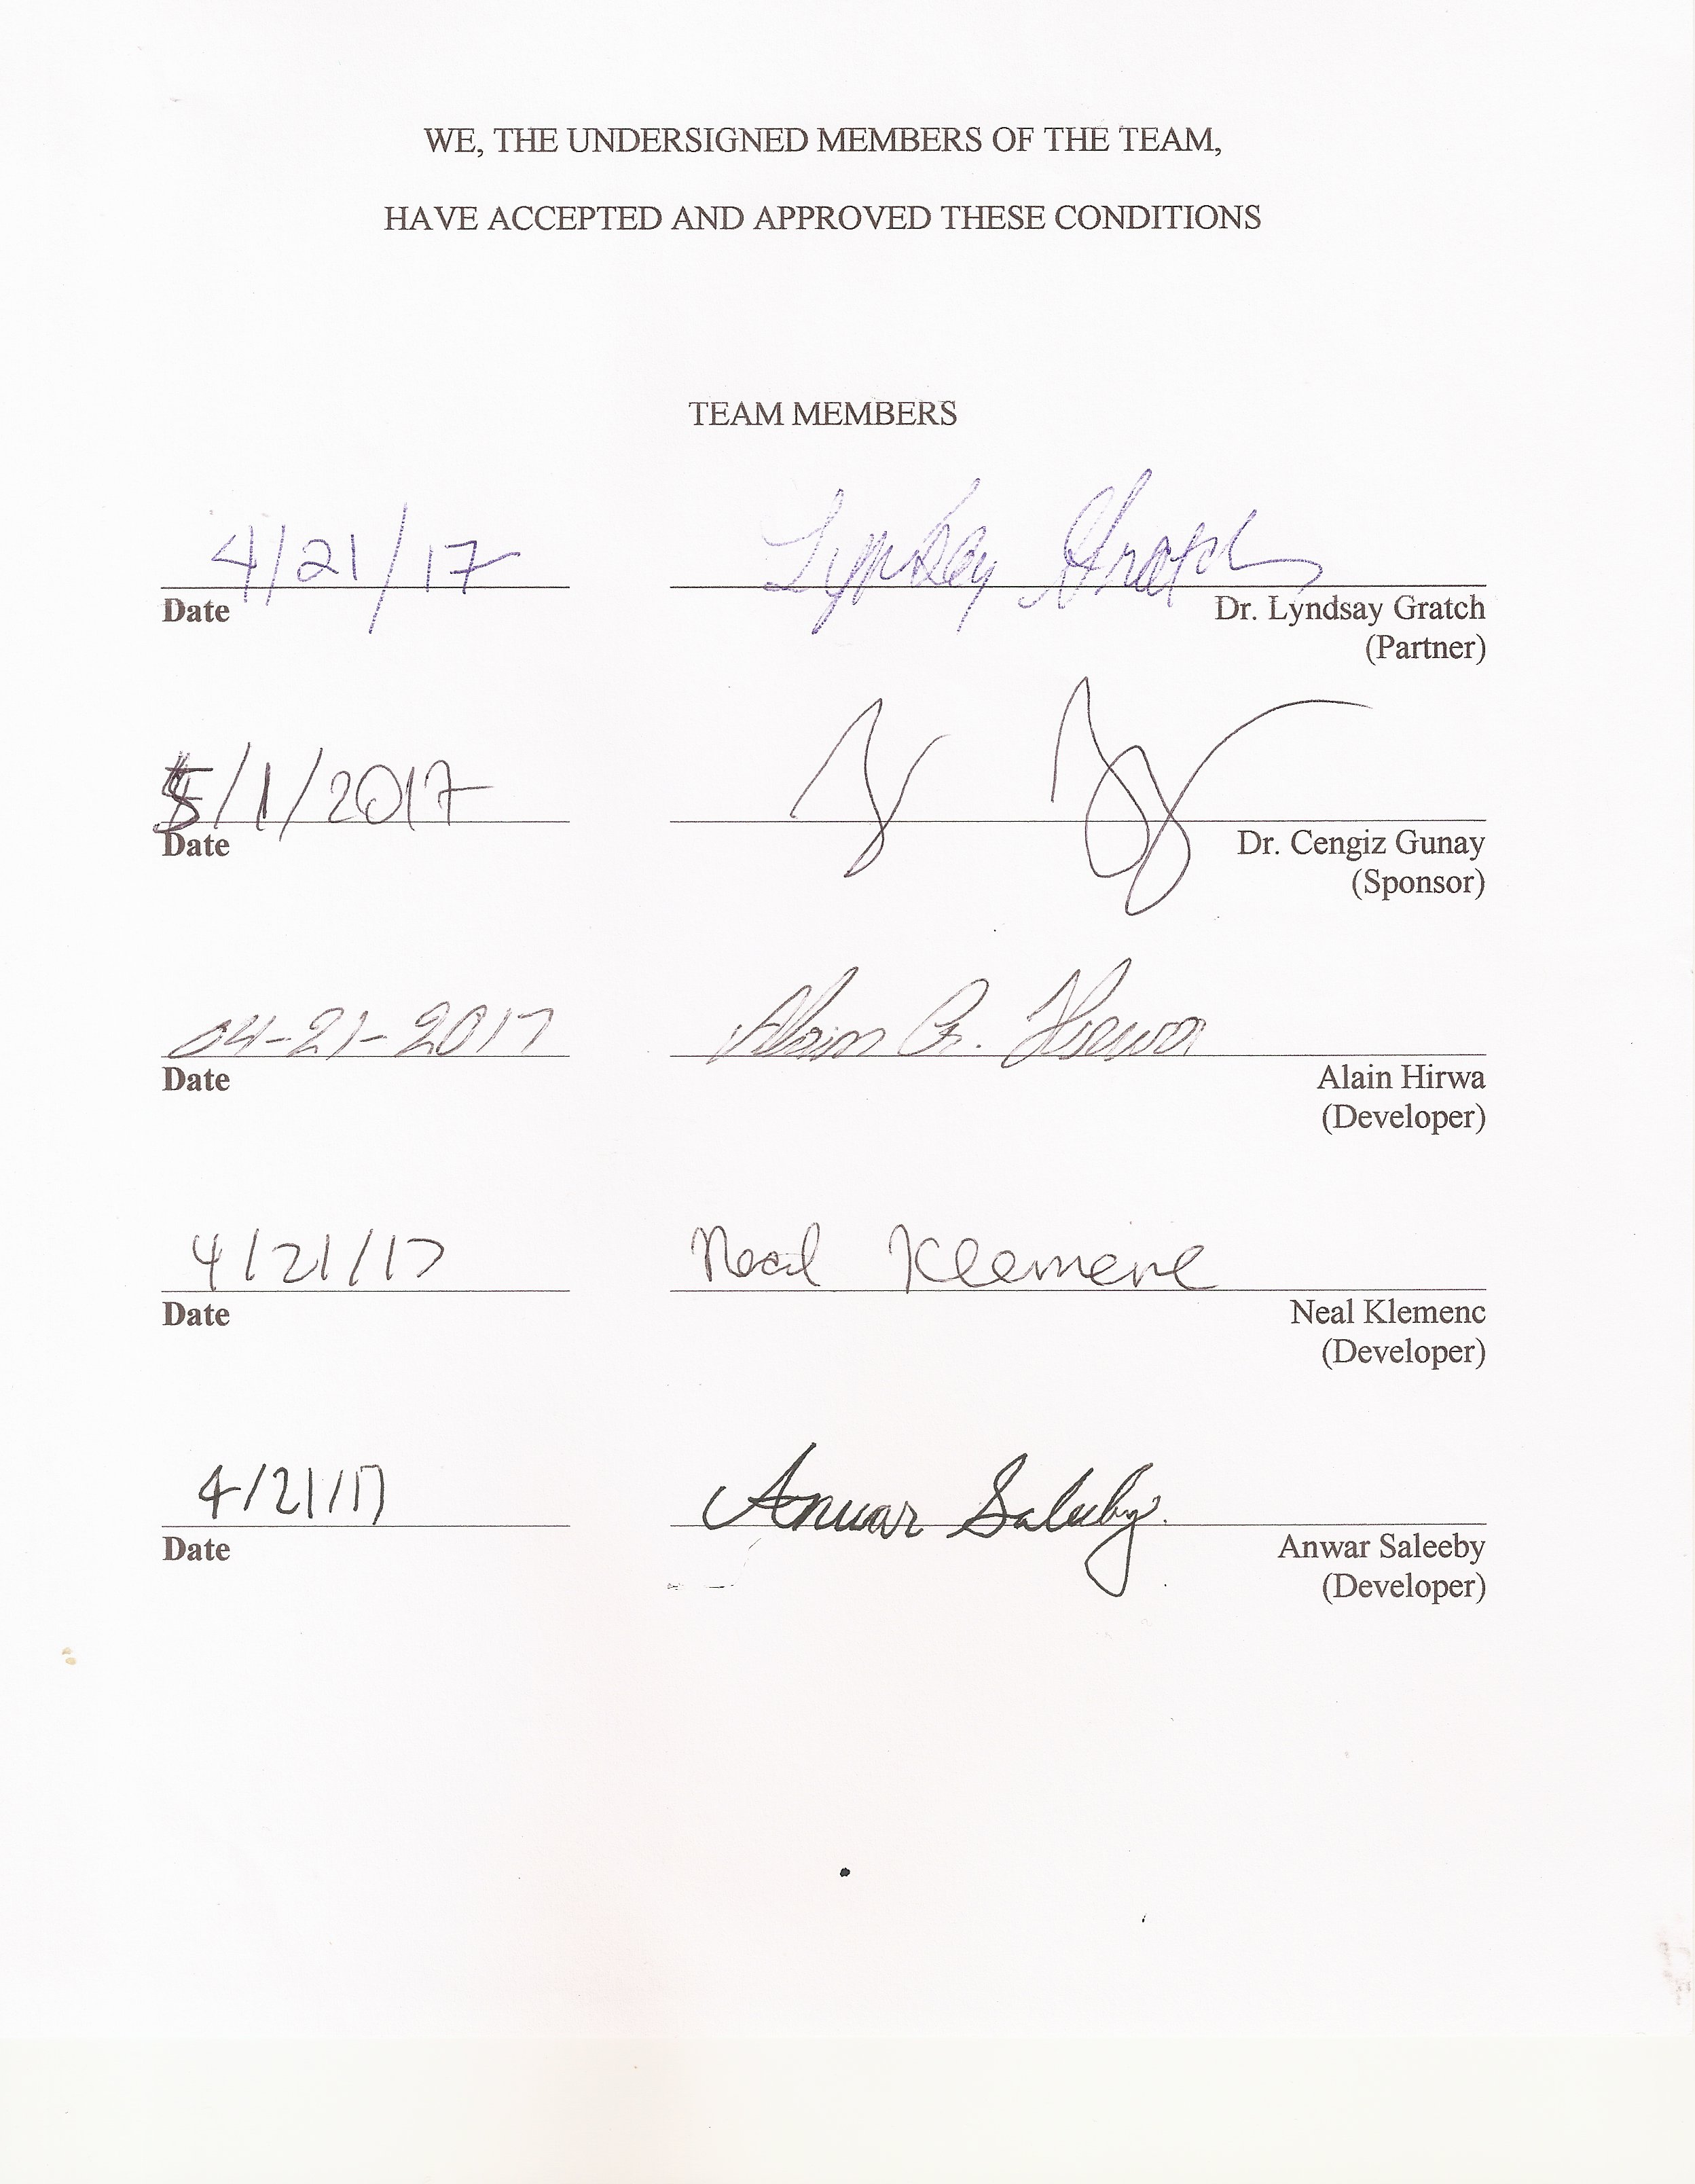 WE, THE UNDERSIGNED MEMBERS OF THE TEAM,
HAVE ACCEPTED AND APPROVED THESE CONDITIONS
TEAM MEMBERS
4/21/17 Lyndsay Gratch
Date Dr. Lyndsay Gratch
(Partner)
5/1/2017
Date Dr. Cengiz Gunay
(Sponsor)
04-21-2017 Alain G. Hirwa
Date Alain Hirwa
(Developer)
4/21/17 Neal Klemenc
Date Neal Klemenc
(Developer)
4/21/17 Anwar Saleeby
Date Anwar Saleeby
(Developer)